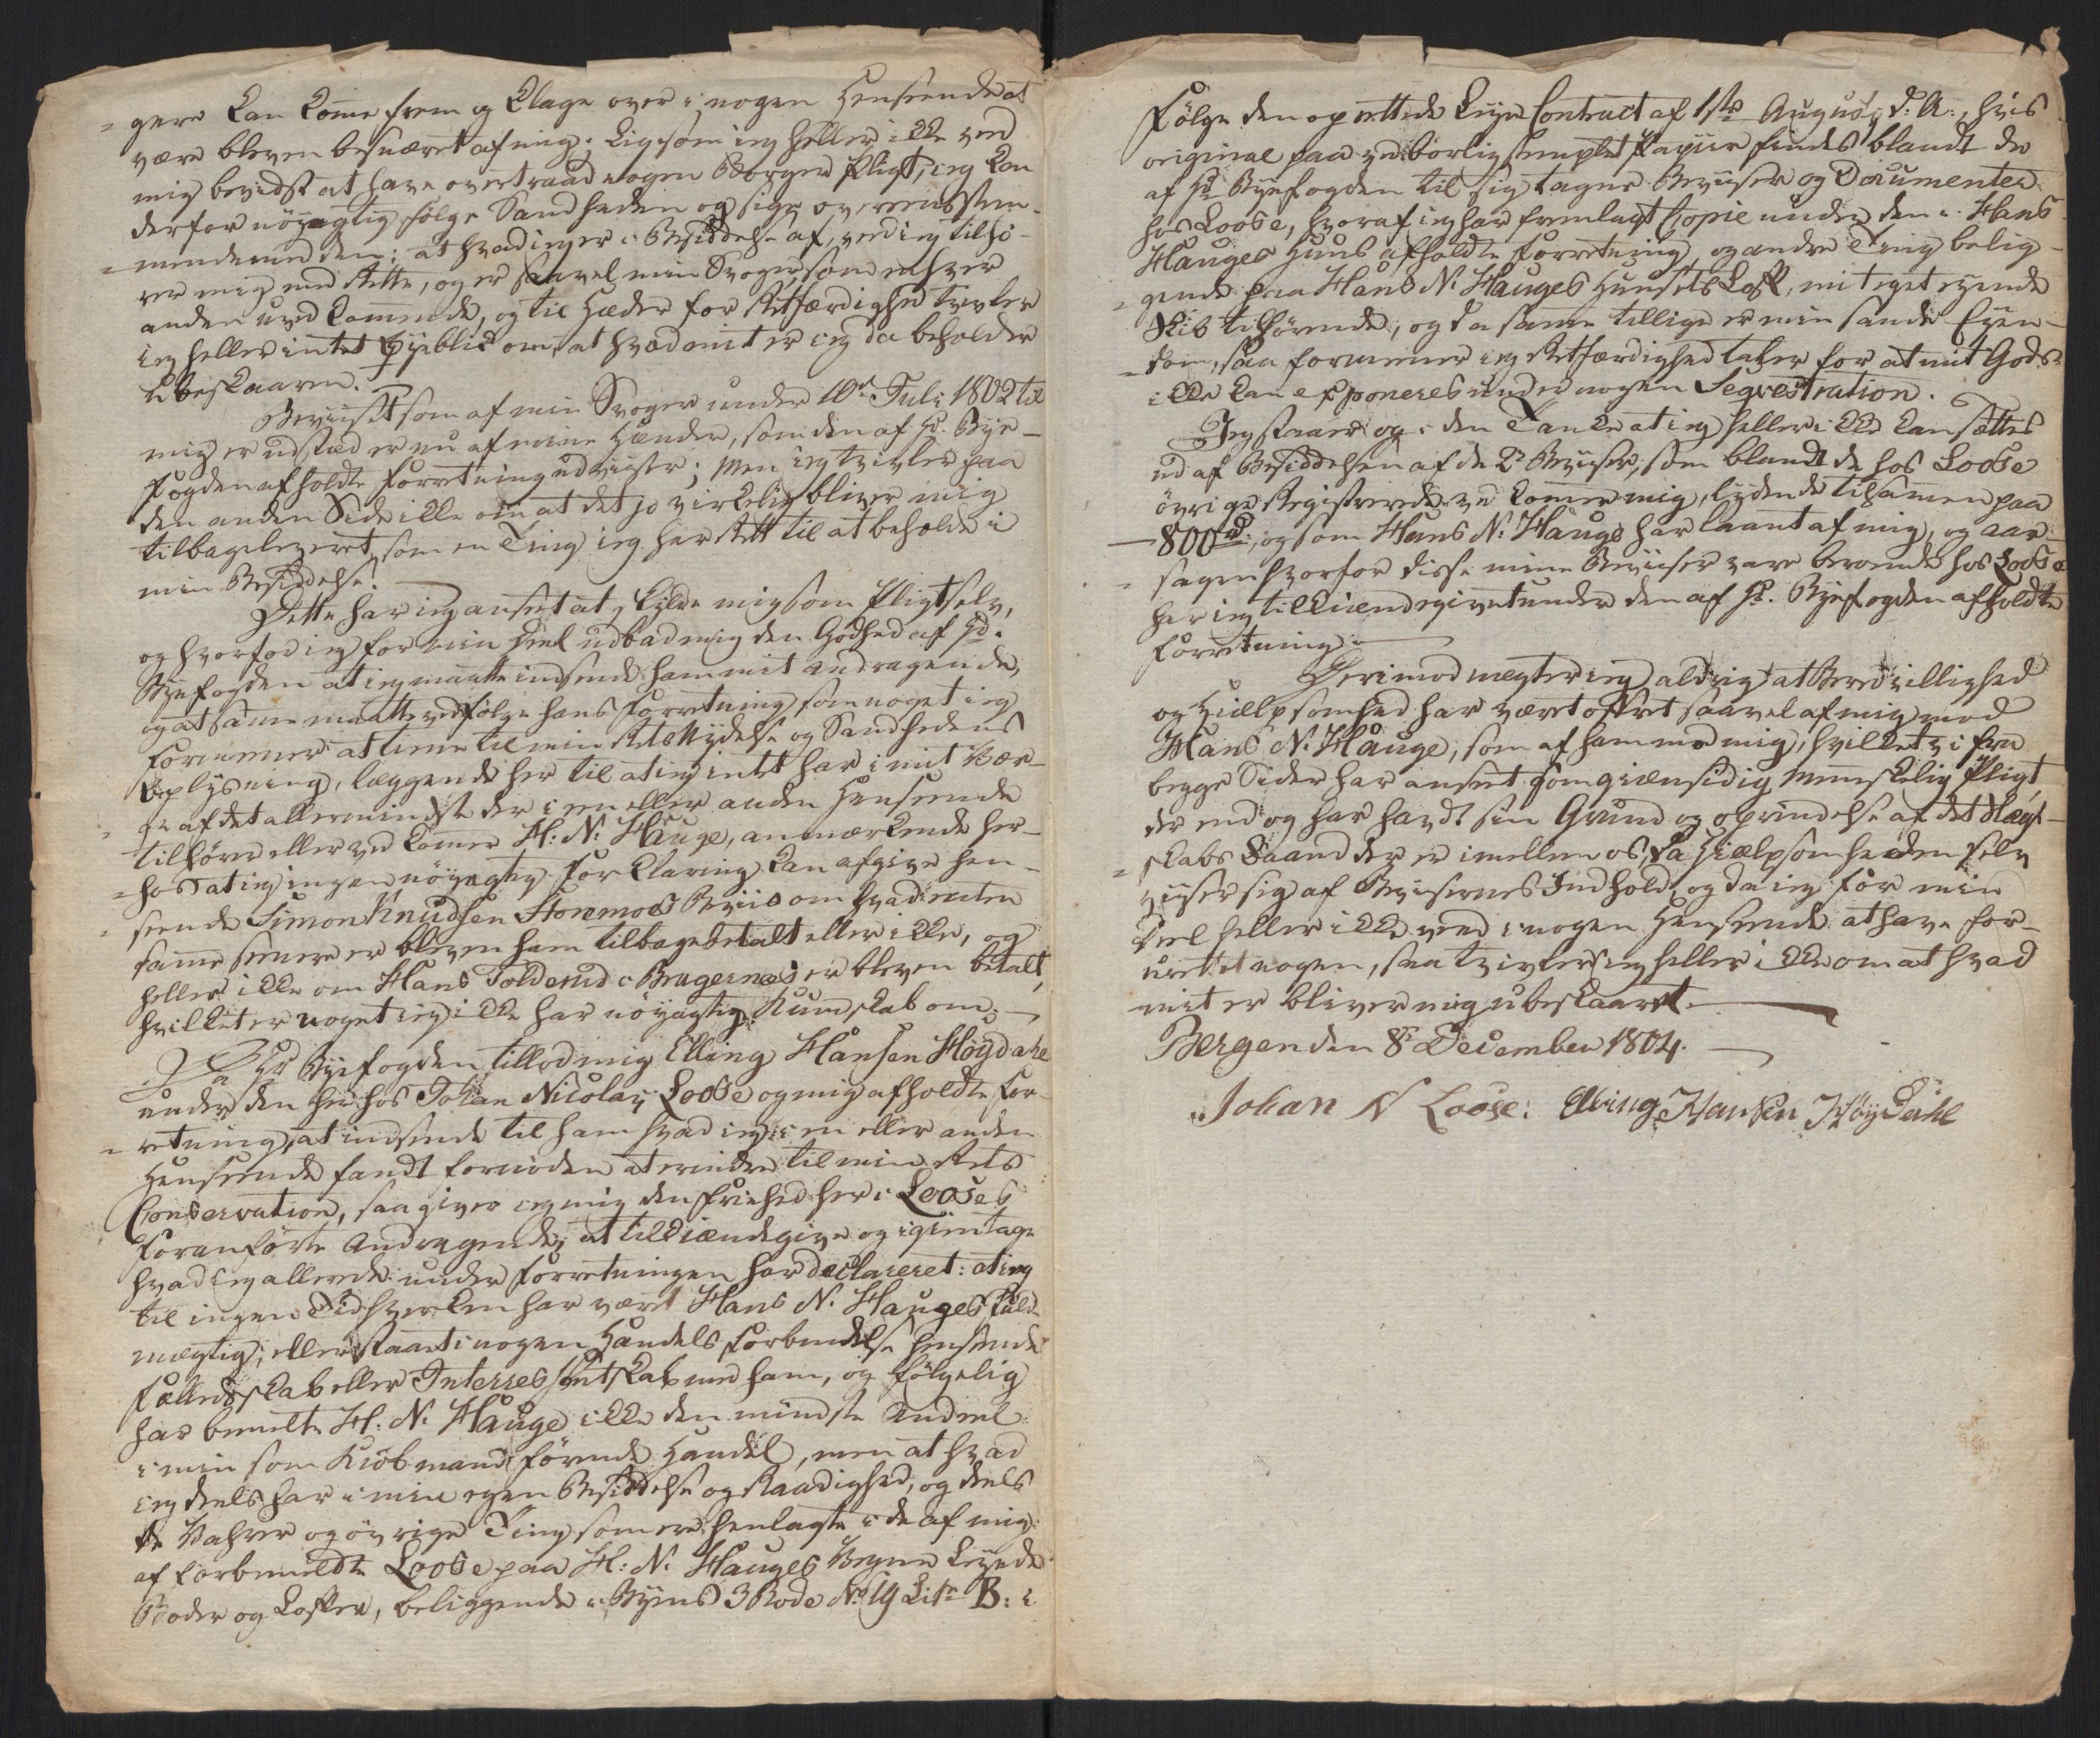 -gere kan komme frem og klage over i nogen Henseende at
være bleven besværet af mig; Ligesom ieg heller ikke ved
mig bevidst at have overtraad nogen Borger Pligt; ieg kan
derfor nöyagtig følge Sandheden og sige overeensstem-
-mende med den: at hvad ieg er i Besiddelse af, ved ieg tilhö-
rer mig med Rette, og er saavel min Svoger, som enhver
anden uved kommende, og til Hæder for Retfærdighed tvivler
ieg heller intet Øyeblik om, at hvad mit er ieg da beholder
ubeskaaren.
Beviiset som af min Svoger under 10de Juli 1802 til
mig er udstæd er nu af mine Hænder, som den af Hr. Bye-
fogden afholdte Forretning udviiser; Men ieg tvivler paa
den anden Side ikke om at det jo virkelig bliver mig
tilbageleveret, som en Ting ieg har Rett til at beholde i
min Besiddelse.
Dette har ieg anseet at skylde mig som Pligt selv,
og hvorfor ieg for min Deel udbad mig den Godhed af Hr.
Byefogden at ieg maatte indsende ham mit Andragende,
og at samme maatte vedfølge hans Forretning som noget ieg
formener at tiene til min Rets Nydelse og Sandhedens
Oplysning, læggende her til at ieg intet har i mit Vær-
-ge af det allermindste der i een eller anden Henseende
tilhører eller ved kommer H: N: Hauge, anmærkende her-
-hos at ieg ingen nöyagtig Forklaring kan afgive hen-
-seende Simon Knudsen Stormoes Beviis om hvad enten
samme seenere er bleven ham tilbagebetalt eller ikke, og
heller ikke om Hans Tolderud i Bragernæs er bleven betalt,
hvilket er noget ieg ikke har nöyagtig Kundskab om.
Da Hr Byefogden tillod mig Elling Hansen Höydahl
under den her hos Johan Nicolay Loose og mig afholdte For-
-retning, at indsende til ham hvad ieg i een eller anden
Henseende fandt fornöden at erindre til min Rets
Conservation, saa giver ieg mig den Friehed her i Looses
foranförte Andragende, at tilkiændegive og igientage
hvad ieg allerede under Forretningen har declareret: at ieg
til ingen Tid hverken har været Hans N. Hauges Fuld-
mægtig, eller staaet i nogen Handels Forbindelse henseende
Fælledsskab eller Interressentskab med ham, og fölgelig
har bemelte H: N: Hauge ikke den mindste Andeel
i min som Kiöbmand förende Handel, men at hvad
ieg deels har i min egen Besiddelse og Raadighed, og deels
de Vahrer og övrige Ting som ere henlagte i de af mig
af forbemeldte Loose paa H: N: Hauges Vegne Leyede
Boder og Lofter, beliggende i Byens 3 Rode No 19 Litr B: i
Fölge den oprettede Leye Contract af 1ste August d: A:, hvis
original paa vedbörlig stemplet Papiir findes blandt de
af Hr Byefogden til sig tagne Beviiser og Documenter
hos Loose, hvoraf ieg har fremlagt Copie under den i Hans
Hauges Huus afholdte Forretning, og andre Ting belig-
-gende paa Hans N. Hauges Huusets Loft, mit eget eyende
Skib tilhørende, og da samme tillige er min sande Eyen-
-dom, saa formener ieg Retfærdighed taler for at mit Gods
ikke kan exponeres under nogen Seqvestration.
Jeg staaer og i den Tanke at ieg heller ikke kan sættes
ud af Besiddelsen af de 2de Beviiser, som blandt de hos Loose
övrige Registrerede ved kommer mig, lydende tilsammen paa
- 800 rd:, og som Hans N. Hauge har laant af mig, og aar-
-sagen hvorfor disse mine Beviiser vare beroende hos Loose
har ieg tilkiændegivet under den af Hr. Byefogden afholdte
Forretning.
Derimod nægter ieg aldrig at Beredvillighed
og Hielpsomhed har været öfret saavel af mig mod
Hans N. Hauge, som af ham mod mig, hvilket vi fra
begge Sider har anseet som giænsidig menneskelig Pligt
der end og har havdt sin Grund og oprindelse af det Slægt-
-skabs Baand der er imellem os, da Hielpsomheden selv
viiser sig af Beviisernes Indhold, og da ieg for min
Deel heller ikke veed i nogen Henseende at have for-
urettet nogen, saa tvivler ieg heller ikke om at hvad
mit er bliver mig ubeskaaret.
Bergen den 8de December 1804.
Johan N Loose. Elling Hansen Höydahl